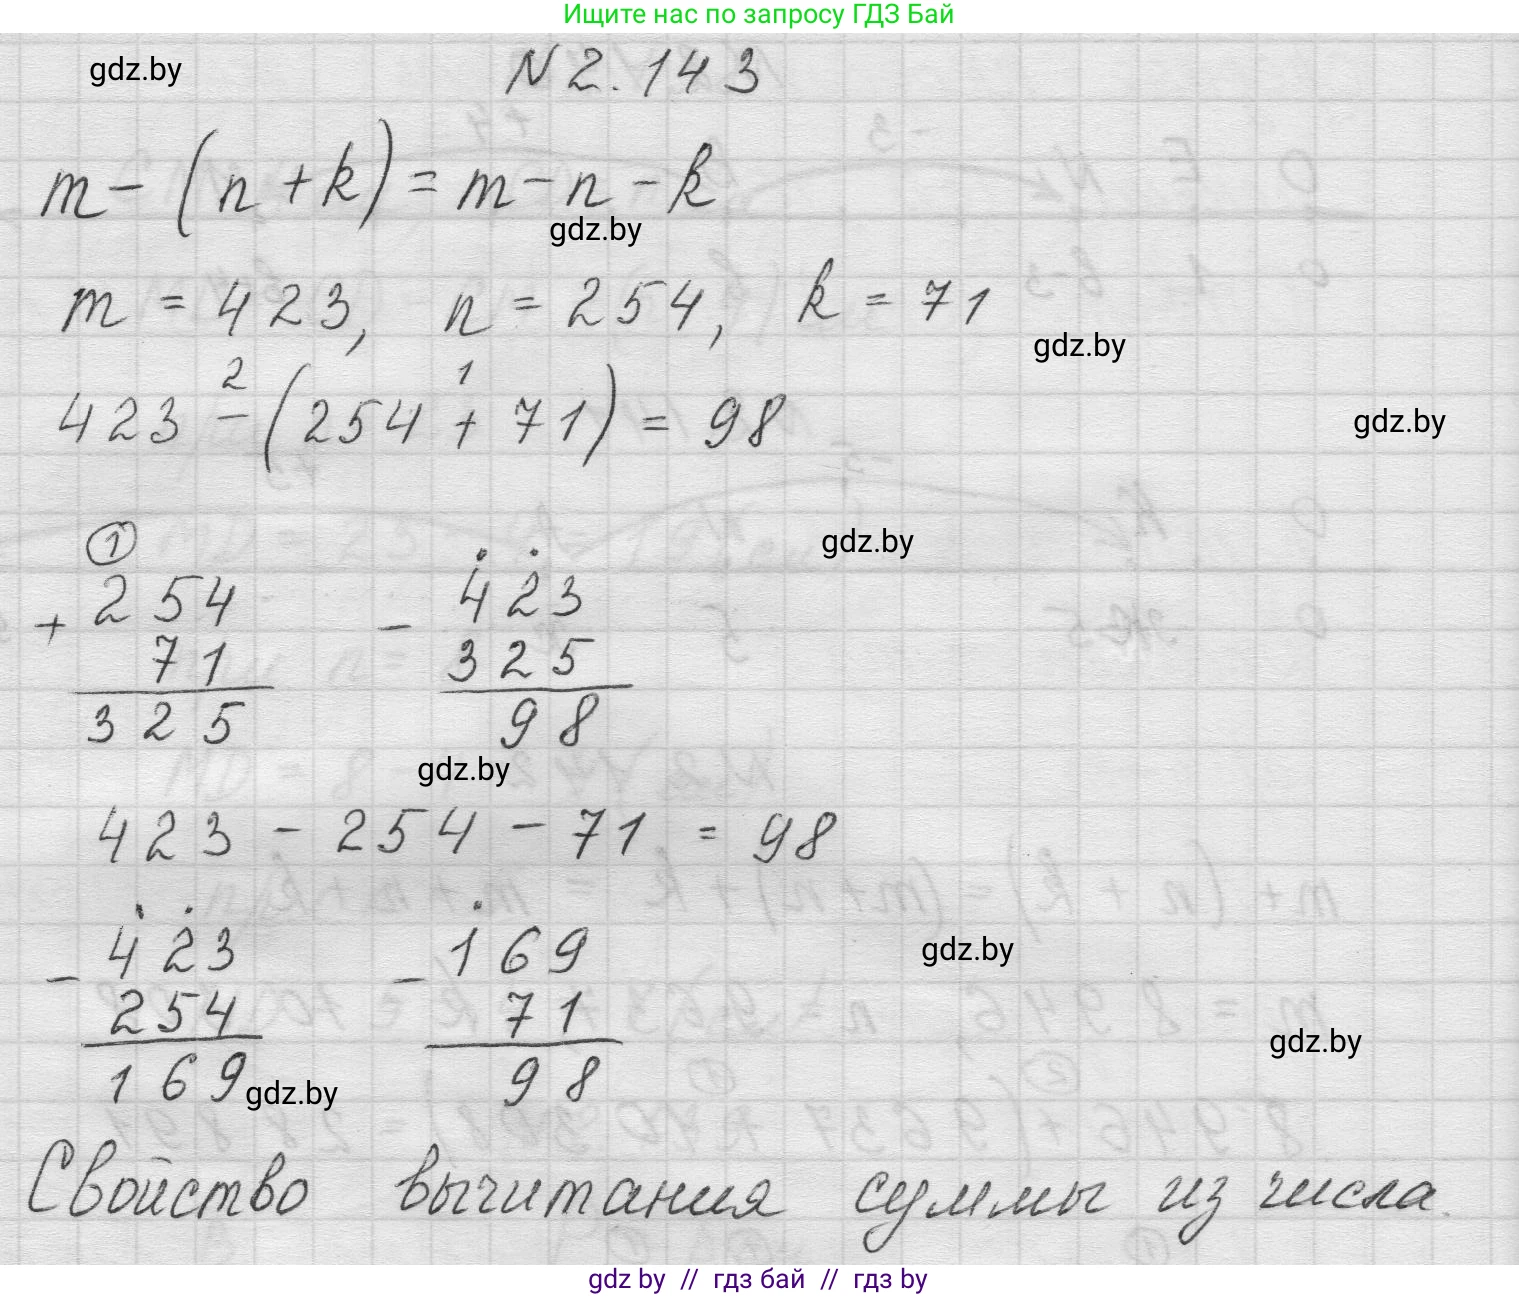 Ищите нас по запросу ГДЗ Бай
gdz.by
N 2.143
m - (n + k) = m - n - k
gdz.by
m = 423, n = 254, k = 71
gdz.by
2 1
423 - (254 + 71) = 98
gdz.by
1
gdz.by
+ 254 - 423
71 325
325 98
gdz.by
423 - 254 - 71 = 98
- 423 - 169
gdz.by
254 71
gdz.by
169 98
gdz.by
Свойство вычитания суммы из числа.
gdz by // гдз бай // гдз by